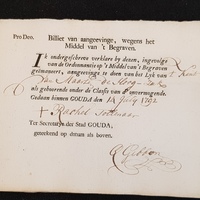 Pro Deo. Billet van aangeevinge, wegens het
Middel van 't Begraven.
Ik ondergeschreve verklare by dezen, ingevolge
van de Ordonnantie op 't Middel van 't Begraven
geëmaneert, aangevinge te doen van het Lyk van 't Kind
van
als gehoorende onder de Classis van onvermogende
Gedaan binnen GOUDA den 14 July 1792
Rachel
Ter Secretarye der Stad GOUDA,
geteekend op dezen als boven.